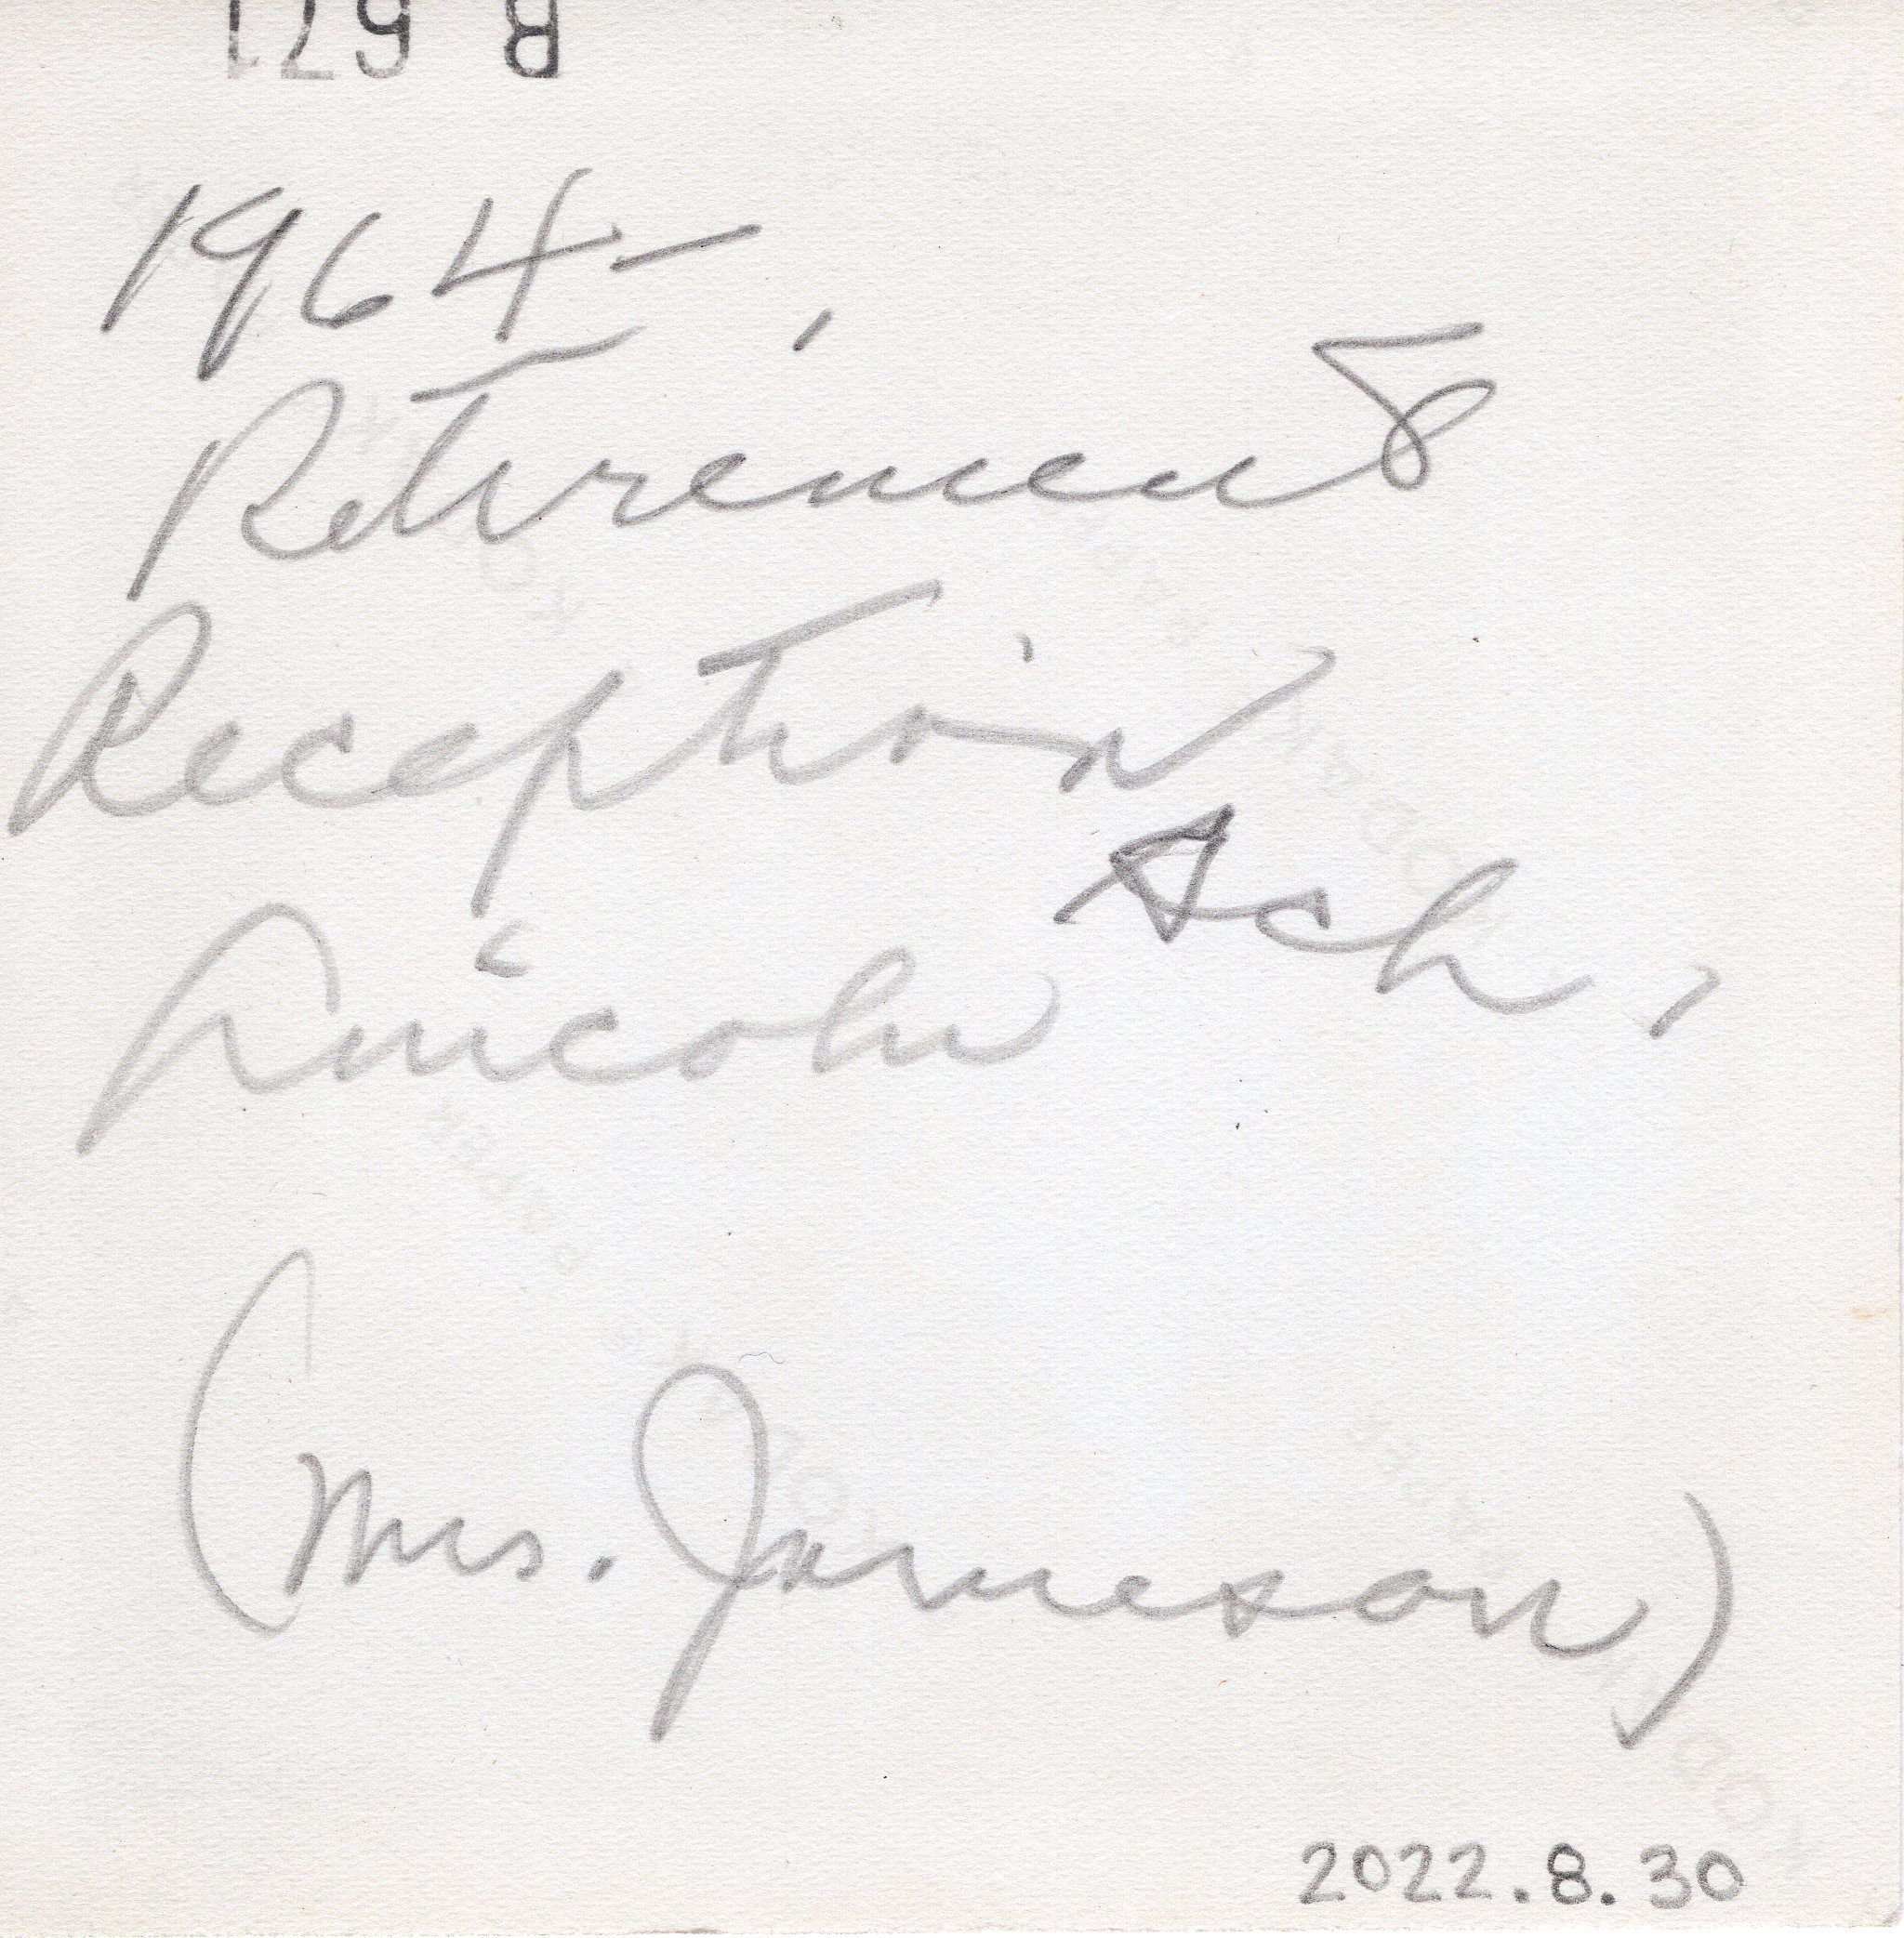 1964-
Retirement
Reception
Lincoln Sch.
(Mrs. Jameson)
2022.8.30